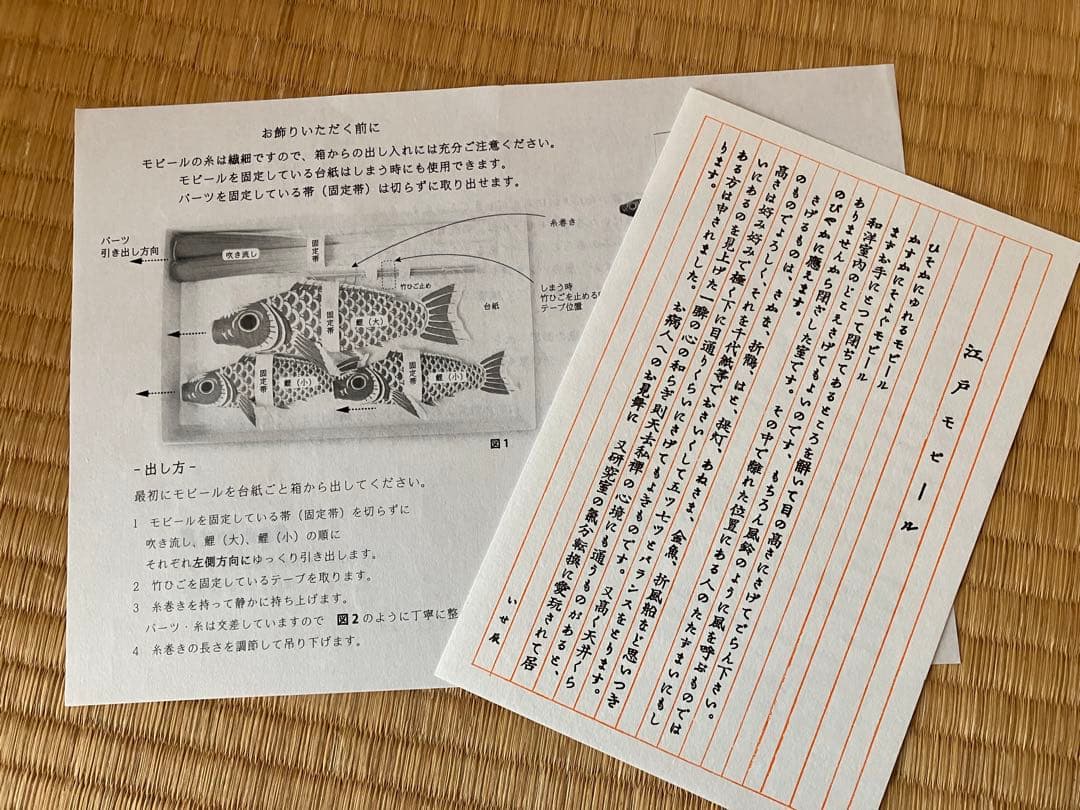 お飾りいただく前に
モビールの糸は繊細ですので、箱からの出し入れには充分ご注意ください。
モビールを固定している台紙はしまう時にも使用できます。
パーツを固定している帯（固定帯）は切らずに取り出せます。
パーツ
引き出し方向
吹き流し
固定帯
糸巻き
竹ひご止め
しまう時
竹ひごを止める
テープ位置
台紙
固定帯
鯉（大）
固定帯
鯉（小）
固定帯
鯉（小）
図1
- 出し方 -
最初にモビールを台紙ごと箱から出してください。
1 モビールを固定している帯（固定帯）を切らずに
吹き流し、鯉（大）、鯉（小）の順に
それぞれ左側方向にゆっくり引き出します。
2 竹ひごを固定しているテープを取ります。
3 糸巻きを持って静かに持ち上げます。
パーツ・糸は交差していますので 図2のように丁寧に整
4 糸巻きの長さを調節して吊り下げます。
江戸モビール
ひそかにゆれるモビール
かすかにそよぐモビール
まずお手にとつて閉ぢてあるところを解いて目の高さにさげてごらん下さい。
和洋室内のどこえさげてもよいのです、もちろん風鈴のように風を呼ぶものでは
ありませんから閉ざした室です。その中で離れた位置にある人のたたずまいにもし
のびやかに應えます。
さげるものは、さかな、折鶴、はと、提灯、あねさま、金魚、折風船など思いつき
のものでよろしく、それを千代紙等でおさいくして五ツ七ツとバランスをとります。
高さは好み好みで極く下に目通りくらいにさげてもよきものです。又高く天井くら
いにあるのを見上げた一瞬の心の和らぎ則天去私禪の心境にも通うものがあると、
ある方は申されました。お病人へのお見舞に 又研究室の氣分転換に愛玩されて居
ります。
いせ辰